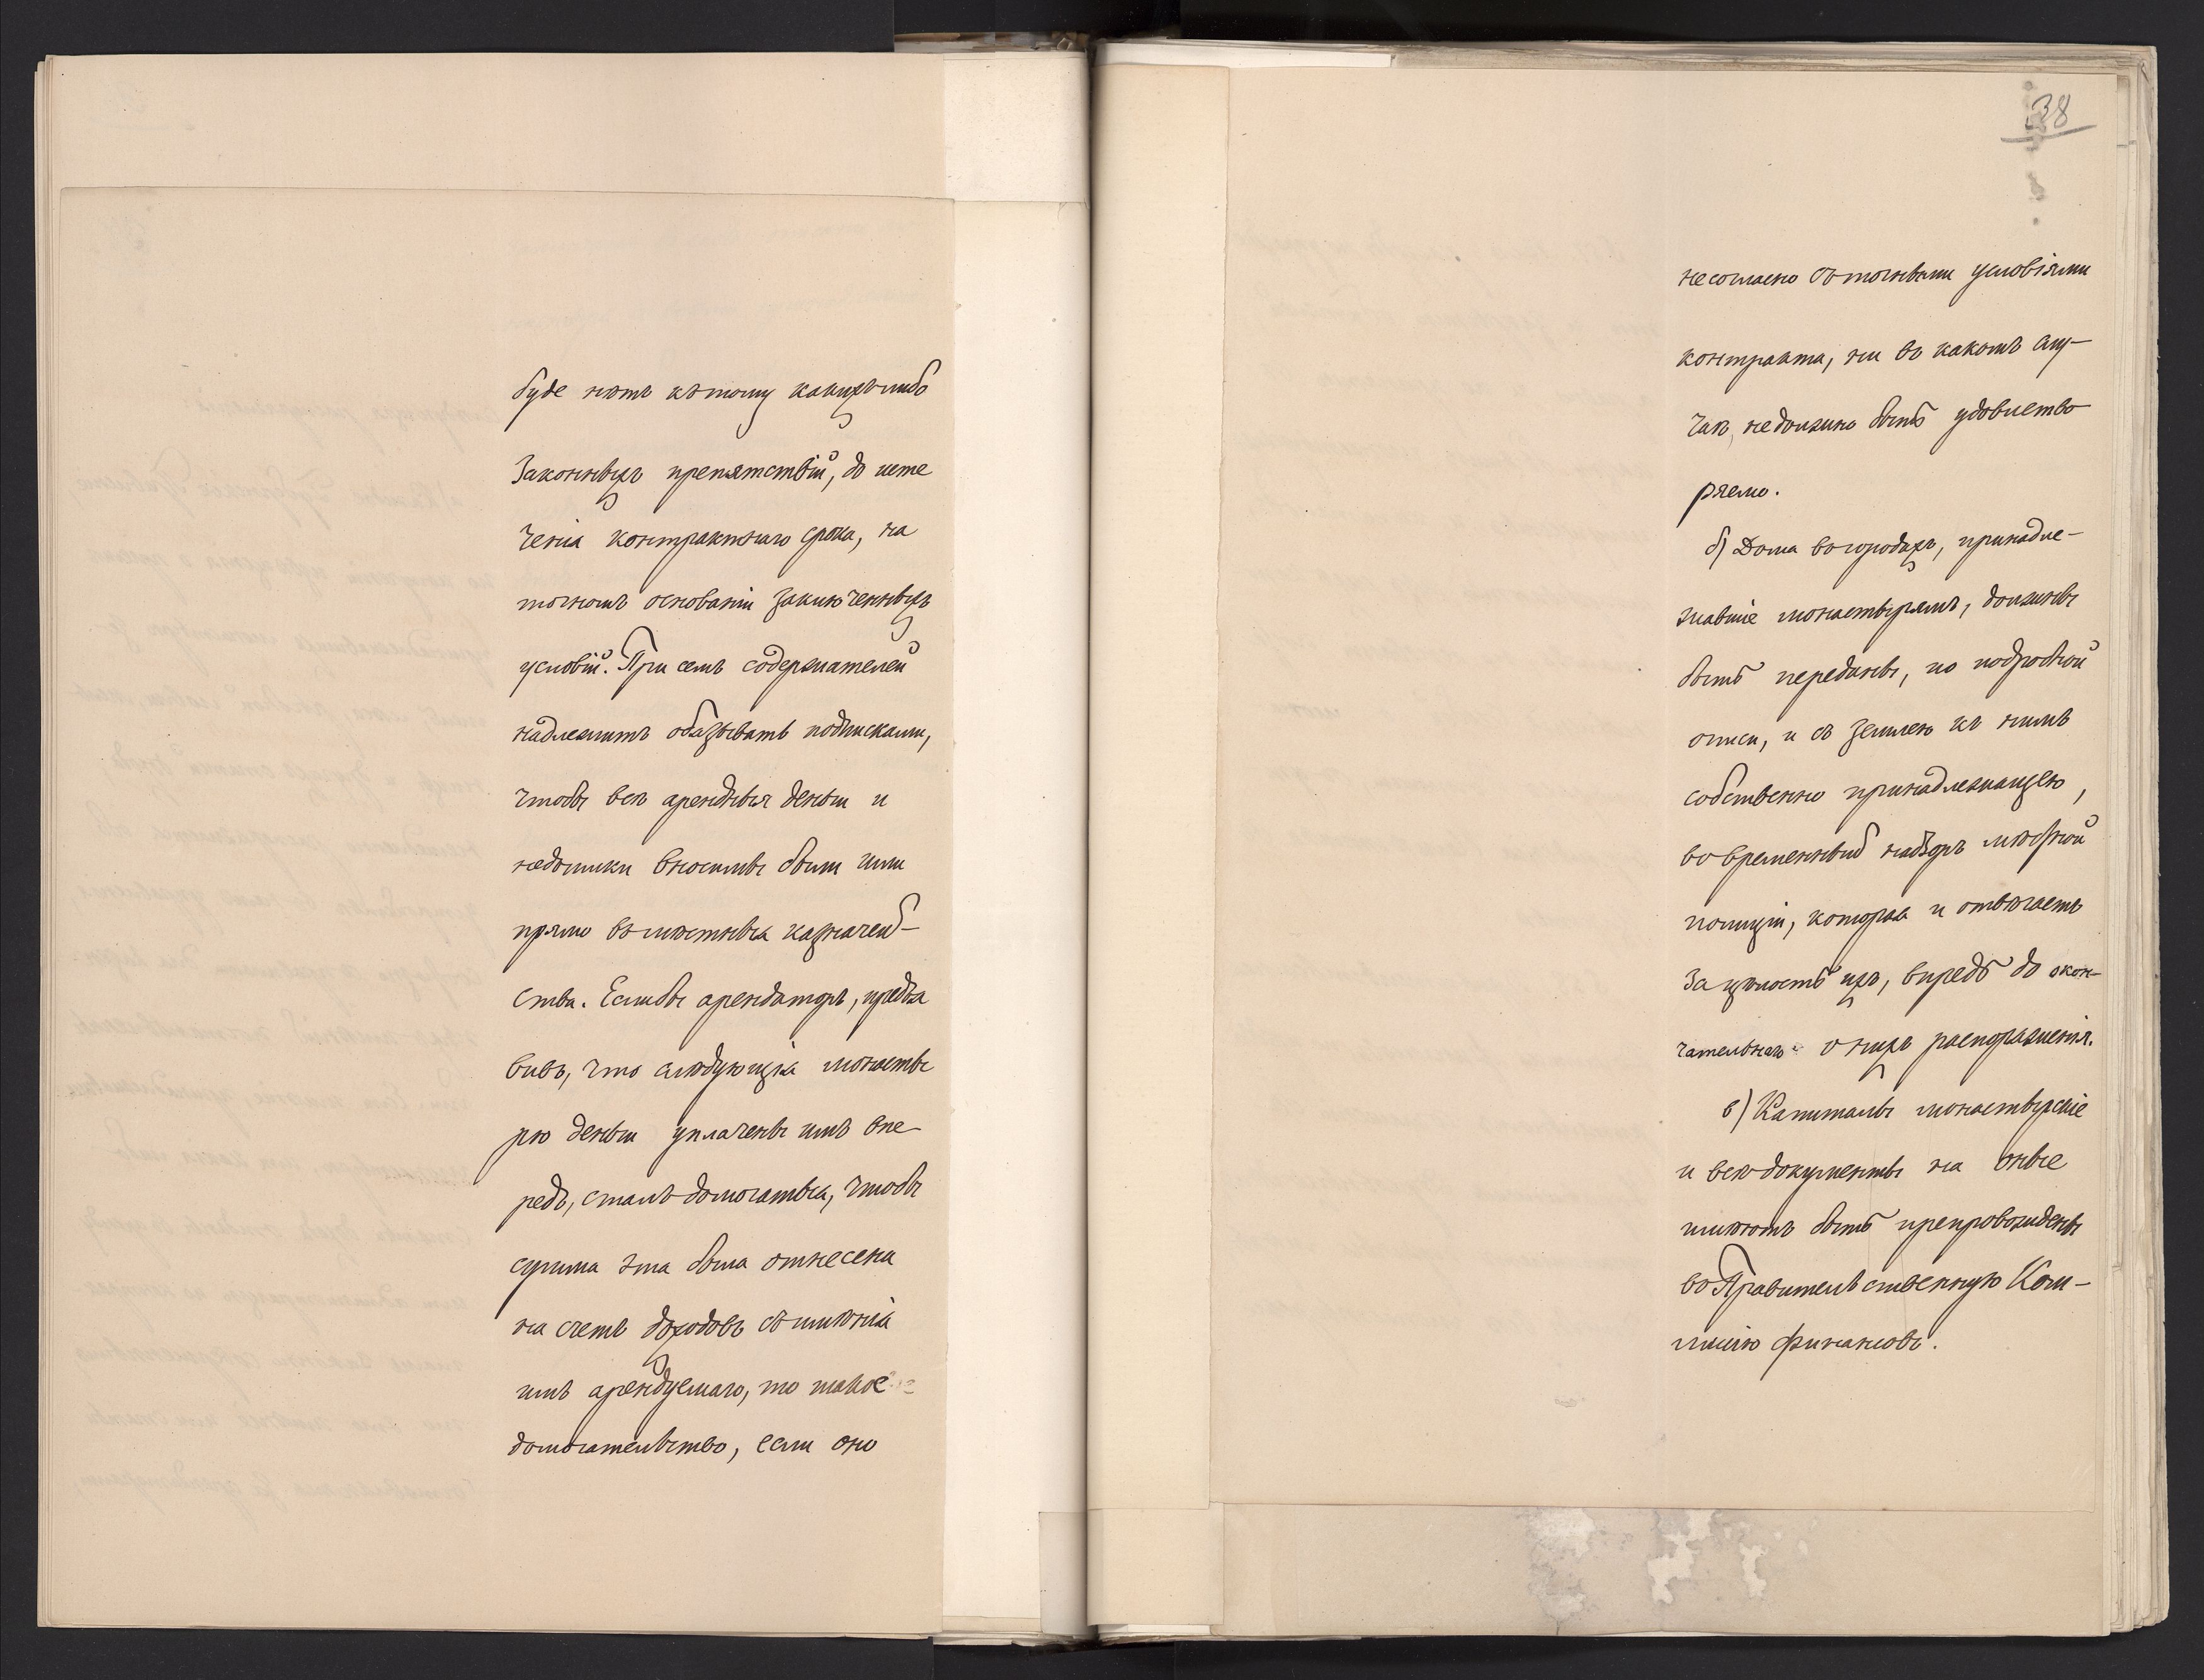 буде нѣтъ къ тому какихъ либо
законныхъ препятствій, до исте
ченія контрактнаго срока, на
точномъ основаніи заключенныхъ
условій. При семъ содержателей
надлежитъ обязывать подписками,
чтобы всѣ арендныя деньги и
недоимки вносимы были ими
прямо въ мѣстныя казначей-
ства. Еслибы арендаторъ, предъя
вивъ, что слѣдующія монасты
рю деньги уплачены имъ впе-
редъ, сталъ домогаться, чтобы
сумма эта была отнесена
на счетъ доходовъ съ имѣнія
имъ арендуемаго, то такое
домогательство, если оно
38
несогласно съ точными условіями
контракта, ни въ какомъ слу-
чаѣ, недолжно быть удовлетво
ряемо.
б) Дома въ городахъ, принадле-
жавшіе монастырямъ, должны
быть переданы, по подробной
описи, и съ землею къ нимъ
собственно принадлежащею,
во временный надзоръ мѣстной
полиціи, которая и отвѣчаетъ
за цѣлость ихъ, впредь до окон-
чательнаго о нихъ распоряженія.
в) Капиталы монастырскіе
и всѣ документы на оные
имѣютъ быть препровождены
въ Правительственную Ком-
мисію финансовъ.